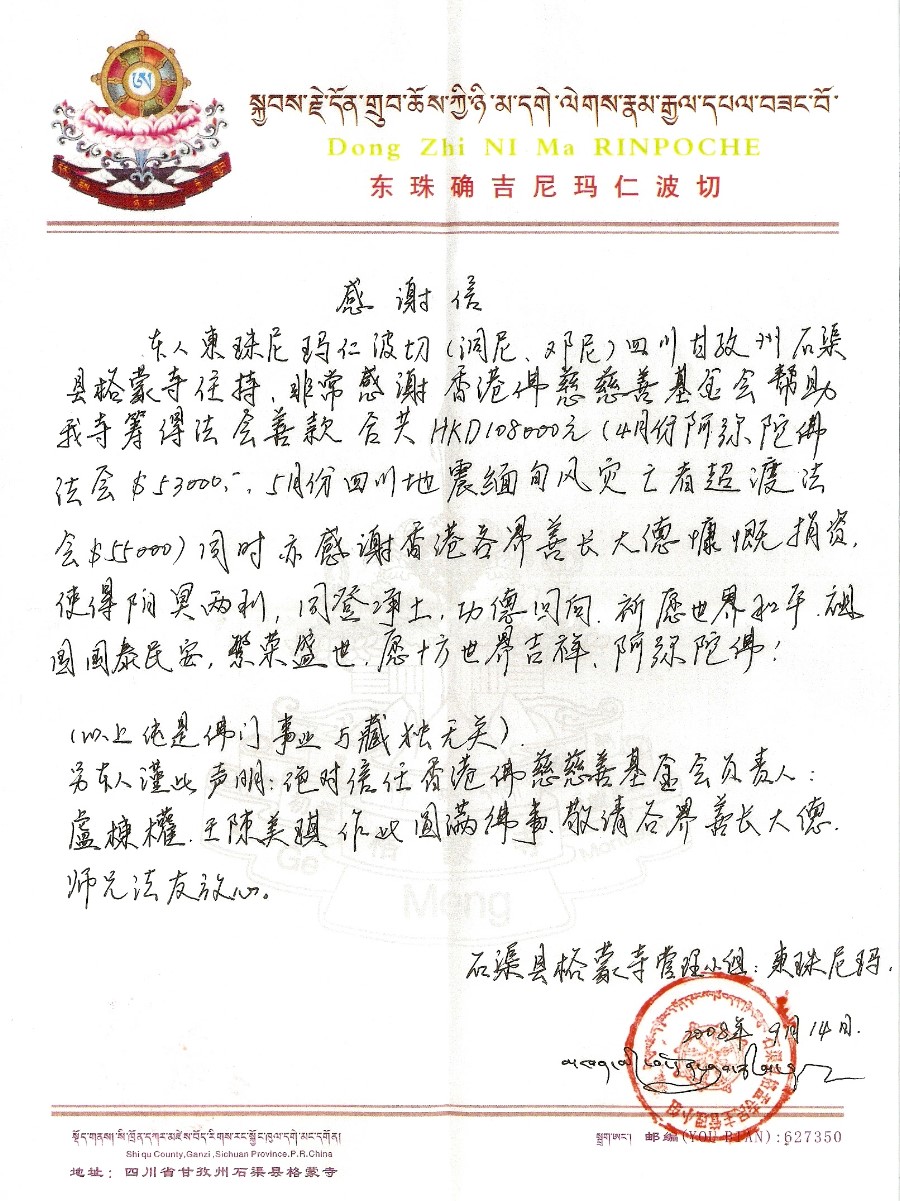 སྐྱབས་རྗེ་དོན་གྲུབ་ཆོས་ཀྱི་ཉི་མ་དགེ་ལེགས་རྣམ་རྒྱལ་དཔལ་བཟང་པོ་
Dong Zhi NI Ma RINPOCHE
东珠确吉尼玛仁波切
感谢信
本人東珠尼玛仁波切(洞尼、邓尼)四川甘孜州石渠
县格蒙寺住持,非常感谢香港佛慈慈善基金会帮助
我寺筹得法会善款合共HKD108000元(4月份阿弥陀佛
法会$53000,-,5月份四川地震緬甸风灾亡者超渡法
会$55000)同时亦感谢香港各界善长大德慷慨捐资,
使得阴冥两利,同登净土,功德回向.祈愿世界和平.祖
国国泰民安,繁荣盛世,愿十方世界吉祥、阿弥陀佛!
(以上纯是佛门事业与藏独无关).
另本人谨此声明:绝对信任香港佛慈慈善基金会负责人:
盧棟權.王陳美琪作此圆满佛事.敬请各界善长大德.
师兄法友放心。
石渠县格蒙寺管理小组:東珠尼玛.
2008年9月14日.
Ge
Meng
སྡོད་གནས་སི་ཁྲོན་དཀར་མཛེས་བོད་རིགས་རང་སྐྱོང་ཁུལ་དགེ་མང་དགོན།
Shi qu County,Ganzi,Sichuan Province,P.R.China
地址:四川省甘孜州石渠县格蒙寺
སྦྲག་ཨང་། 邮编(YOU BIAN):627350